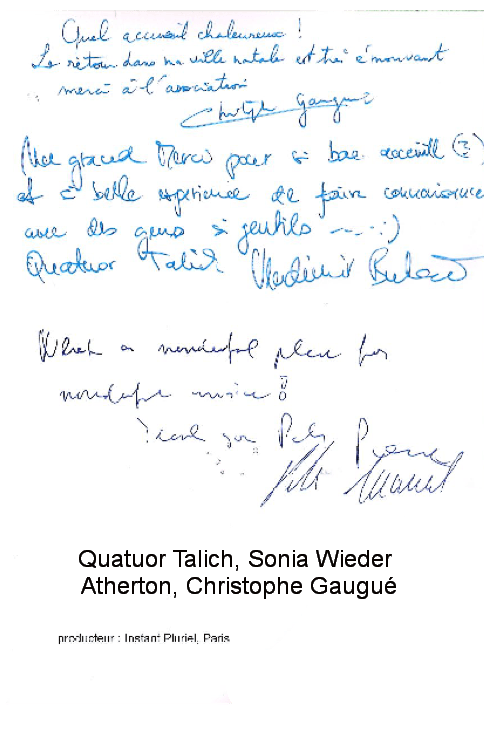 Quel accueil chaleureux !
Le retour dans ma ville natale est très émouvant
merci à l'association
Christophe Gaugué
Une grand Merci pour si bon acceuill (?)
et si belle expérience de faire connaissance
avec des gens si gentils ---- :)
Quatuor Talich Vladimir Bukač
What a wonderful place for
wonderful music !
Thank you
Petr
Quatuor Talich, Sonia Wieder
Atherton, Christophe Gaugué
producteur : Instant Pluriel, Paris